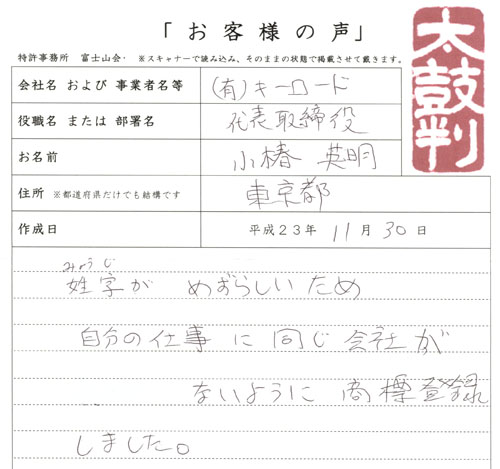 「お客様の声」
特許事務所 富士山会・ ※スキャナーで読み込み、そのままの状態で掲載させて戴きます。
太鼓判
会社名 および 事業者名等 (有)キーロード
役職名 または 部署名 代表取締役
お名前 小椿 英明
住所 ※都道府県だけでも結構です 東京都
作成日 平成23年 11月 30日
みょうじ
姓字が めずらしいため
自分の仕事に同じ会社が
ないように 商標登録
しました。